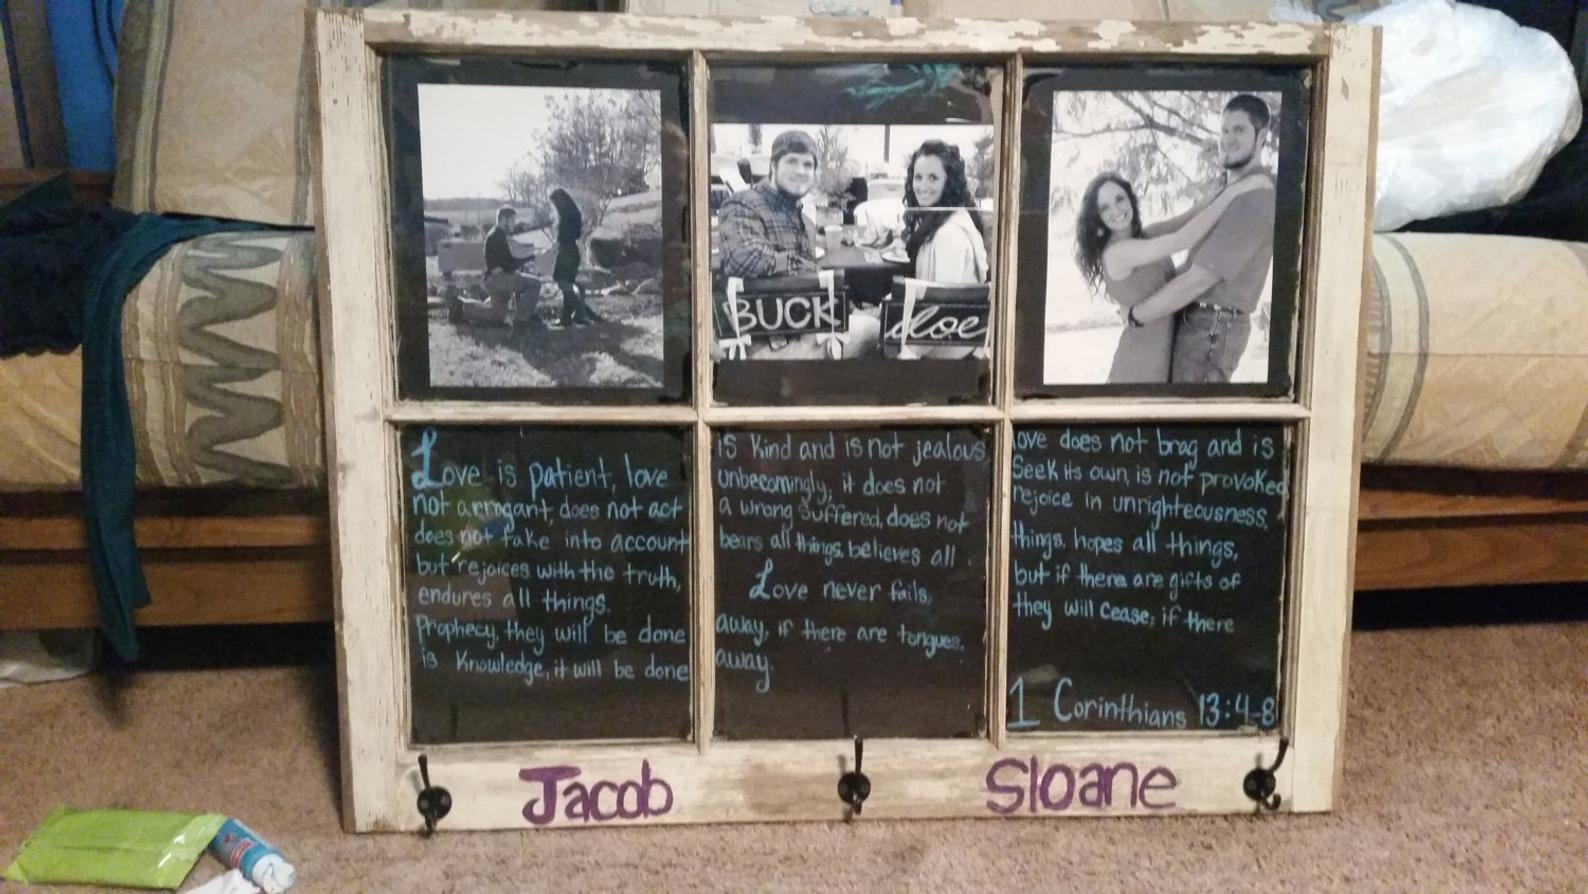 BUCK doe
Love is patient, love is kind and is not jealous, love does not brag and is
not arrogant, does not act unbecomingly; it does not seek its own, is not provoked
does not take into account a wrong suffered, does not rejoice in unrighteousness,
but rejoices with the truth, bears all things, believes all things, hopes all things,
endures all things. Love never fails; but if there are gifts of
Prophecy, they will be done away; if there are tongues, they will cease; if there
is Knowledge, it will be done away.
1 Corinthians 13:4-8
Jacob Sloane